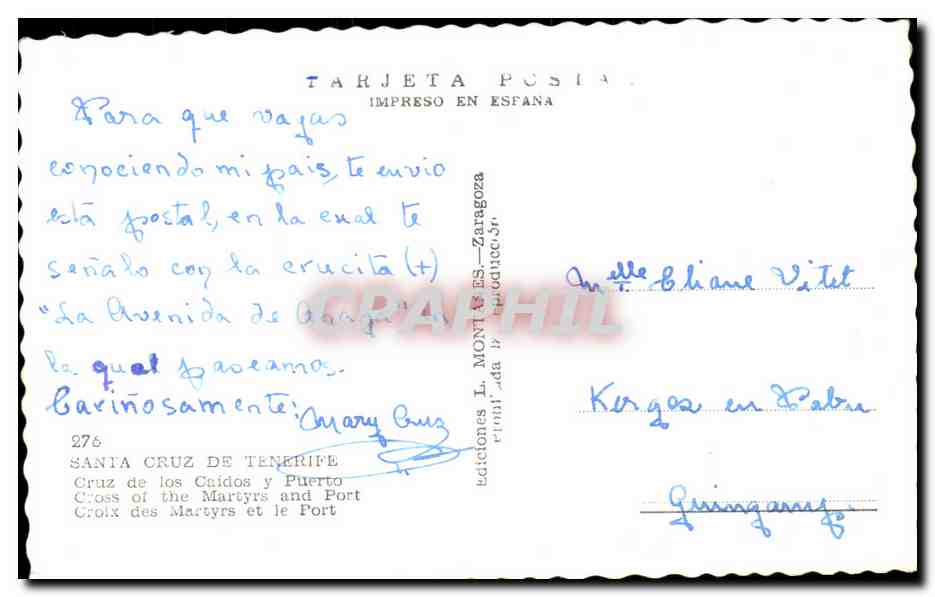 TARJETA POSTA
IMPRESO EN ESPAÑA
Para que vayas
conociendo mi pais, te envio
está postal, en la cual te
señalo con la crucita (+)
"La Avenida de Anaga" en
la qual paseamos.
Cariñosamente:
Mary Cruz
276
SANTA CRUZ DE TENERIFE
Cruz de los Caídos y Puerto
Cross of the Martyrs and Port
Croix des Martyrs et le Port
Ediciones L. MONTAÑES.—Zaragoza
Prohibida la reproducción
GRAPHIL
Melle Eliane Vitel
en Pabu
Guingamp.